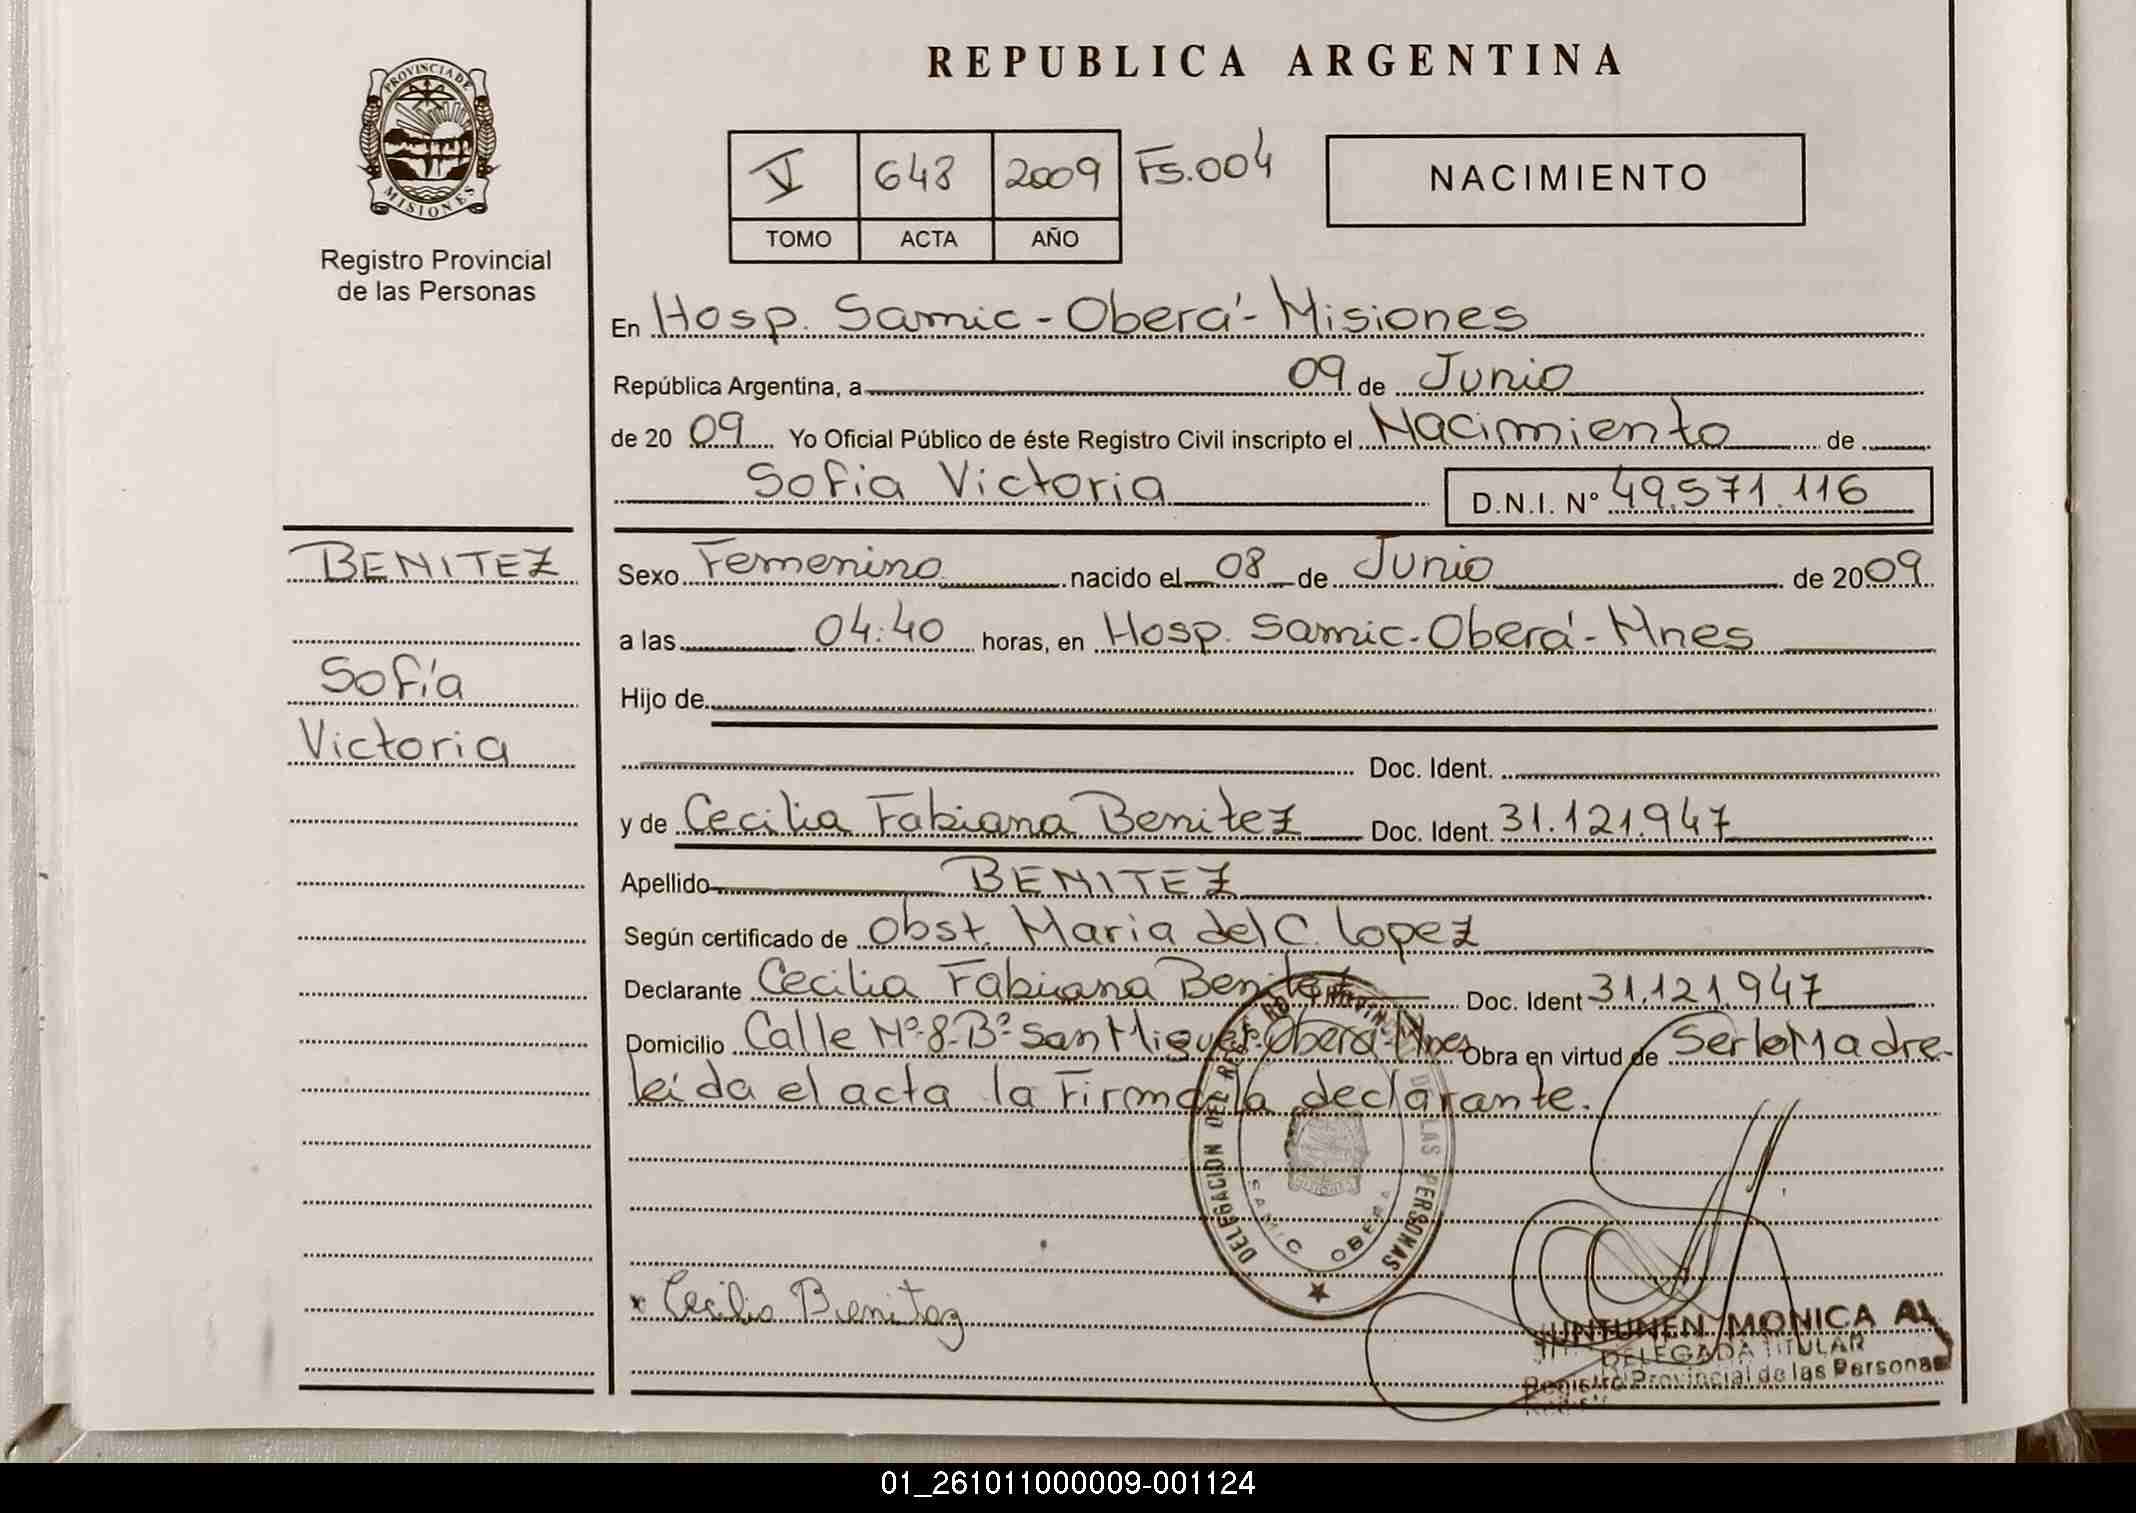 REPUBLICA ARGENTINA
PROVINCIA DE
MISIONES
Registro Provincial
de las Personas
V 648 2009 Fs.004
TOMO ACTA AÑO
NACIMIENTO
En Hosp. Samic - Oberá - Misiones
República Argentina, a 09 de Junio
de 20 09 Yo Oficial Público de éste Registro Civil inscripto el Nacimiento de
Sofia Victoria D.N.I. Nº 49.571.116
BENITEZ
Sofía
Victoria
Sexo Femenino nacido el 08 de Junio de 2009
a las 04:40 horas, en Hosp. Samic - Oberá - Mnes
Hijo de
Doc. Ident.
y de Cecilia Fabiana Benitez Doc. Ident. 31.121.947
Apellido BENITEZ
Según certificado de Obst. Maria del C. Lopez
Declarante Cecilia Fabiana Benitez Doc. Ident 31.121.947
Domicilio Calle Nº 8 - Bº San Miguel - Oberá - Mnes Obra en virtud de Ser la Madre -
leída el acta la Firma la declarante.
DELEGACION DEL REGISTRO PROVINCIAL DE LAS PERSONAS
SAMIC OBERA
Cecilia Benitez
MONICA
DELEGADA TITULAR
Registro Provincial de las Personas
01_261011000009-001124